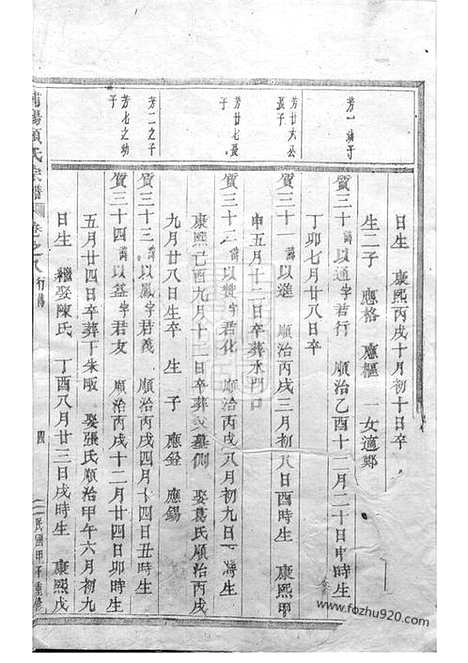 日生 康熙丙戌十月初十日卒
生二子 應格 應樞 一女適鄭
芳一嗣子
質三十 諱以通字君行 順治乙酉十二月二十日申時生
丁卯七月廿八日卒
芳廿六公長子
質三十一 諱以進 順治丙戌三月初八日酉時生 康熙甲
申五月十二日卒葬水門口
芳廿七長子
質三十三 諱以贊字君化 順治丙戌八月初九日 時生
康熙己酉九月十二日卒葬父墓側 娶葛氏順治丙戌
九月廿八日生卒 生 子 應銓 應錫
芳二之子
質三十三 諱以鳳字君儀 順治丙戌四月十四日丑時生
芳七之幼子
質三十四 諱以 字君友 順治丙戌十二月廿四日卯時生
五月廿四日卒葬丁朱畈 娶張氏順治甲午六月初九
日生 繼娶陳氏 丁酉八月廿三日戌時生 康熙戊
浦陽 氏宗譜 卷之八 行傳
四
民國甲子重修
www.fozhu920.com